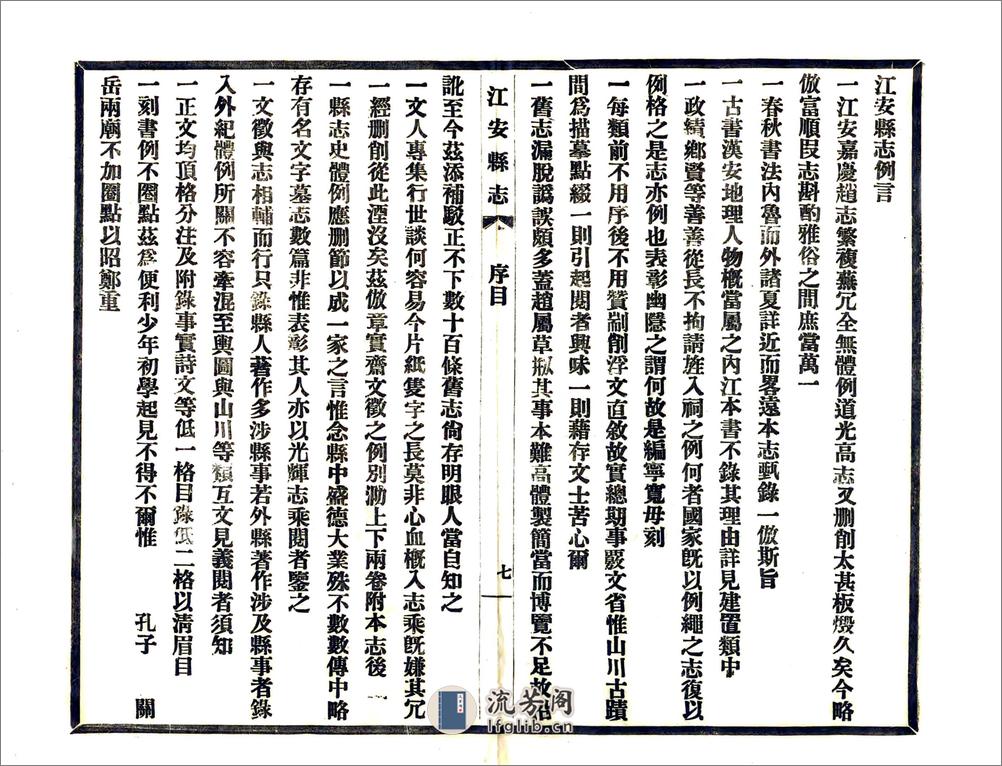 江安縣志例言
一江安嘉慶趙志繁複蕪冗全無體例道光高志又删削太甚板燬久矣今略
倣富順段志斟酌雅俗之間庶當萬一
一春秋書法內魯而外諸夏詳近而畧遠本志甄錄一倣斯旨
一古書漢安地理人物槪當屬之內江本書不錄其理由詳見建置類中
一政績鄉賢等善善從長不拘請旌入祠之例何者國家旣以例繩之志復以
例格之是志亦例也表彰幽隱之謂何故是編寧寬毋刻
一每類前不用序後不用贊剬削浮文直敘故實總期事覈文省惟山川古蹟
間爲描摹點綴一則引起閱者興味一則藉存文士苦心爾
一舊志漏脫譌誤頗多蓋趙屬草剏其事本難高體製簡當而博覽不足故沿
江安縣志
序目
七
訛至今茲添補駁正不下數十百條舊志尙存明眼人當自知之
一文人專集行世談何容易今片紙隻字之長莫非心血槪入志乘旣嫌其冗
一經删削從此湮沒矣茲倣章實齋文徵之例別泐上下兩卷附本志後
一縣志史體例應删節以成一家之言惟念縣中盛德大業殊不數數傳中略
存有名文字墓志數篇非惟表彰其人亦以光輝志乘閱者鑒之
一文徵與志相輔而行只錄縣人著作多涉縣事若外縣著作涉及縣事者錄
入外紀體例所關不容牽混至輿圖與山川等類互文見義閱者須知
一正文均頂格分注及附錄事實詩文等低一格目錄低二格以清眉目
一刻書例不圈點茲爲便利少年初學起見不得不爾惟 孔子 關
岳兩廟不加圈點以昭鄭重
流芳阁
lfglib.cn